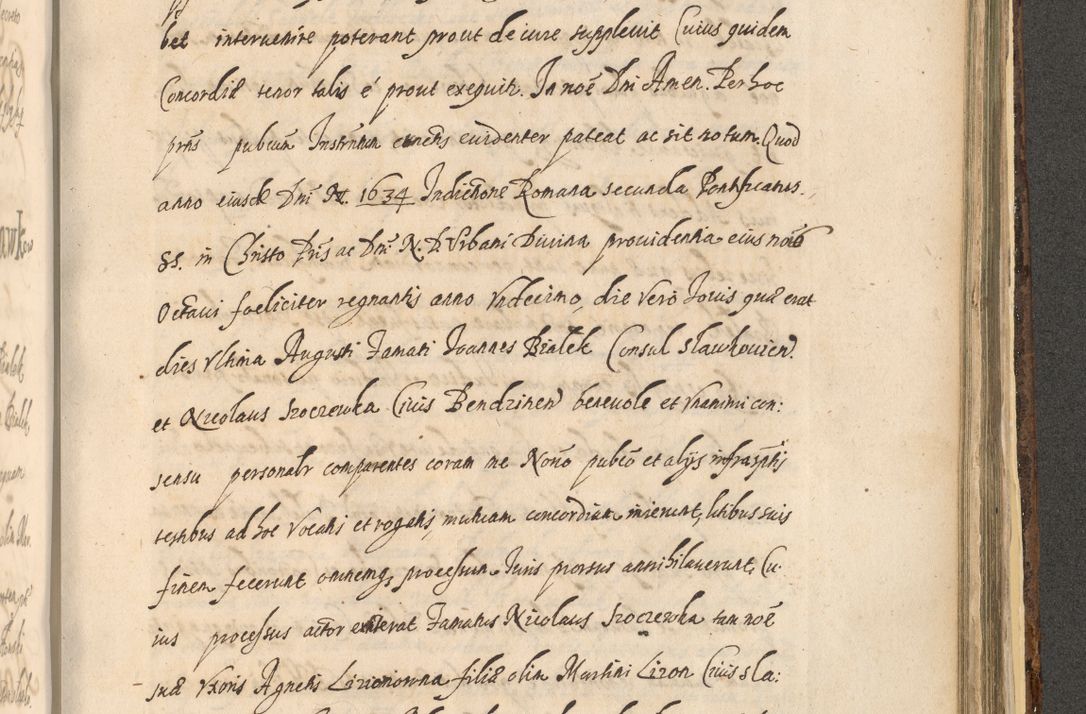 bet intervenire poterant prout de iure supplevit Cuius quidem
Concordiæ tenor talis é prout exequitr. In noē Dni Amen. Per hoc
prñs publicum Instrntum cunctis evidenter pateat ac sit notum. Quod
anno eiusdē Dni M. 1634 Indictione Romana secunda Pontificatus
SS. in Christo Pris ac Dni N. D. Urbani Divina providentia eius nois
Octavi foeliciter regnantis anno Undecimo, die vero Jovis quæ erat
dies ultima Augusti Famati Joannes Bialek Consul Slawkovien
et Nicolaus Szoczewka Civis Bendzinen benevole et unanimi con:
sensu personalr comparentes coram me Notrio publco et alijs infrasptis
testibus ad hoc vocatis et rogatis, mutuam concordiam inierunt, litibus suis
finem fecerunt omnemq, processum Juris prorsus annihilaverunt, Cu-
ius processus actor extiterat Famatus Nicolaus Szoczewka tam noē
suæ Uxoris Agnetis Lizoniowna filiæ olim Martini Lizon Civis Sla: